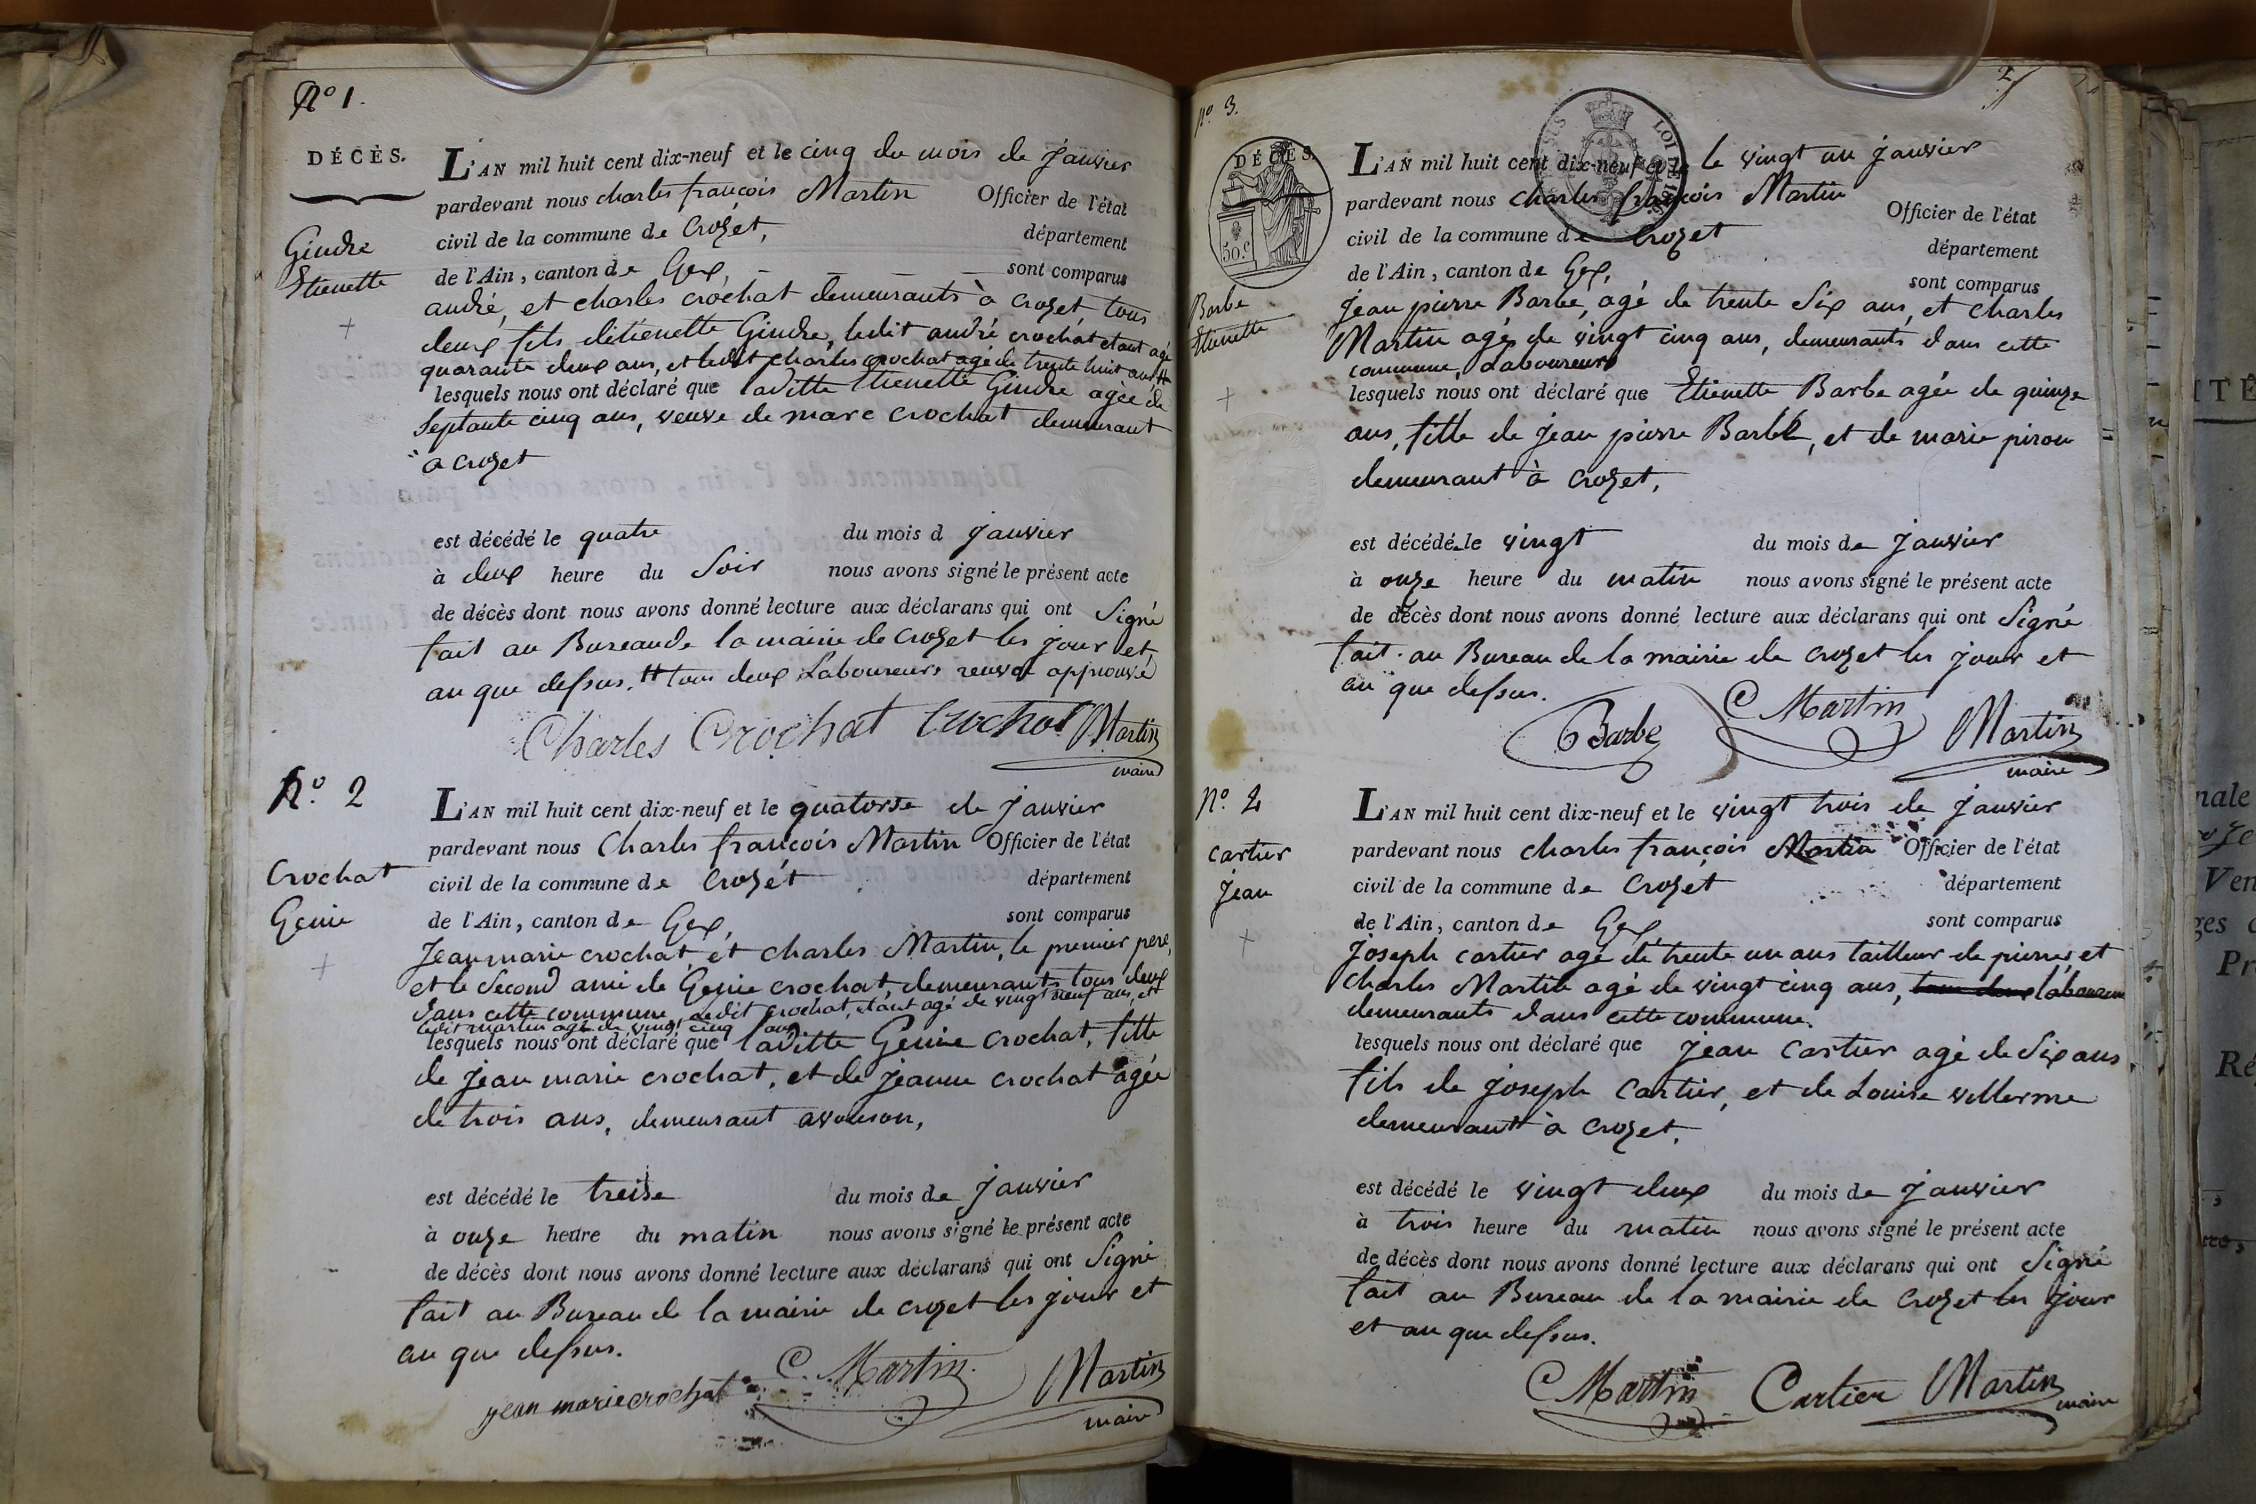 N° 1.
DÉCÈS.
Gindre
Etienette
L'AN mil huit cent dix-neuf et le cinq du mois de janvier
pardevant nous charles françois Martin Officier de l'état
civil de la commune de Crozet, département
de l'Ain, canton de Gex, sont comparus
andré, et charles crochat demeurants à crozet tous
deux fils détienette Gindre, ledit andré crochat etant agé
quarante deux ans, et ledit charles crochat agé de trente huit ans #
lesquels nous ont déclaré que laditte Etienette Gindre agée de
septante cinq ans, veuve de marc crochat demeurant
à crozet
est décédé le quatre du mois d janvier
à deux heure du soir nous avons signé le présent acte
de décès dont nous avons donné lecture aux déclarans qui ont signé
fait au Bureau de la mairie de crozet les jour et
an que dessus. # tous deux Laboureurs renvoi approuvé
Charles Crochat Crochat Martin
maire
N° 2
Crochat
Genie
L'AN mil huit cent dix-neuf et le quatorse de janvier
pardevant nous Charles françois Martin Officier de l'état
civil de la commune de Crozét département
de l'Ain, canton de Gex, sont comparus
Jean marie crochat et charles Martin, le premier pere,
et le second ami de Genie crochat, demeurants tous deux
dans cette commune, ledit crochat, étant agé de vingt neuf ans, et
ledit martin agé de vingt cinq ans
lesquels nous ont déclaré que laditte Genie crochat, fille
de jean marie crochat, et de jeanne crochat agée
de trois ans, demeurant avouson,
est décédé le treise du mois de janvier
à onze heure du matin nous avons signé le présent acte
de décès dont nous avons donné lecture aux déclarans qui ont signé
fait au Bureau de la mairie de crozet les jour et
an que dessus.
jean marie crochat C. Martin. Martin
maire
N° 3.
DÉCÈS.
50.c
LOI DE 1816
Barbe
Etienette
L'AN mil huit cent dix-neuf et le le vingt un janvier
pardevant nous charles françois Martin Officier de l'état
civil de la commune de Crozet département
de l'Ain, canton de Gex, sont comparus
Jean pierre Barbe, agé de trente six ans, et charles
Martin agé de vingt cinq ans, demeurants dans cette
commune, Laboureurs
lesquels nous ont déclaré que Etienette Barbe agée de quinze
ans, fille de jean pierre Barbe, et de marie piron
demeurant à crozet,
est décédé le vingt du mois de janvier
à onze heure du matin nous avons signé le présent acte
de décès dont nous avons donné lecture aux déclarans qui ont signé
fait au Bureau de la mairie de crozet les jour et
an que dessus.
Barbe C Martin Martin
maire
cartier
jean
L'AN mil huit cent dix-neuf et le vingt trois de janvier
pardevant nous charles françois Martin Officier de l'état
civil de la commune de Crozet département
de l'Ain, canton de Gex sont comparus
Joseph cartier agé de trente un ans tailleur de pierres et
Charles Martin agé de vingt cinq ans, tous deux laboureur
demeurants dans cette commune.
lesquels nous ont déclaré que jean cartier agé de six ans
fils de joseph cartier, et de Louise vullerme
demeurant à crozet,
est décédé le vingt deux du mois de janvier
à trois heure du matin nous avons signé le présent acte
de décès dont nous avons donné lecture aux déclarans qui ont signé
fait au Bureau de la mairie de crozet les jour
et an que dessus.
C Martin Cartier Martin
maire